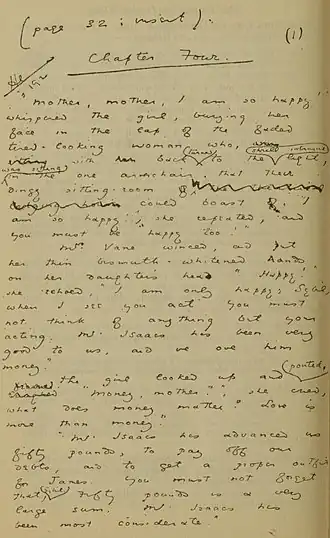 (page 32 : insert).
(1)
Chapter Four.
"Mother, mother, I am so happy,"
whispered the girl, burying her
face in the lap of the faded
tired-looking woman who,
with back turned to the shrill intrusive light,
was sitting in the one armchair that their
dingy sitting-room
could boast of. "I
am so happy!", she repeated, "and
you must be happy too!"
Mrs. Vane winced, and put
her thin bismuth-whitened hands
on her daughter's head. "Happy!"
she echoed, "I am only happy, Sybil,
when I see you act. You must
not think of anything but your
acting. Mr. Isaacs has been very
good to us, and we owe him
money."
The girl looked up and pouted.
"Money, mother?", she cried,
"what does money matter? Love is
more than money."
"Mr. Isaacs has advanced us
fifty pounds, to pay off our
debts, and to get a proper outfit
for James. You must not forget
that, Sybil. Fifty pounds is a very
large sum. Mr. Isaacs has
been most considerate."